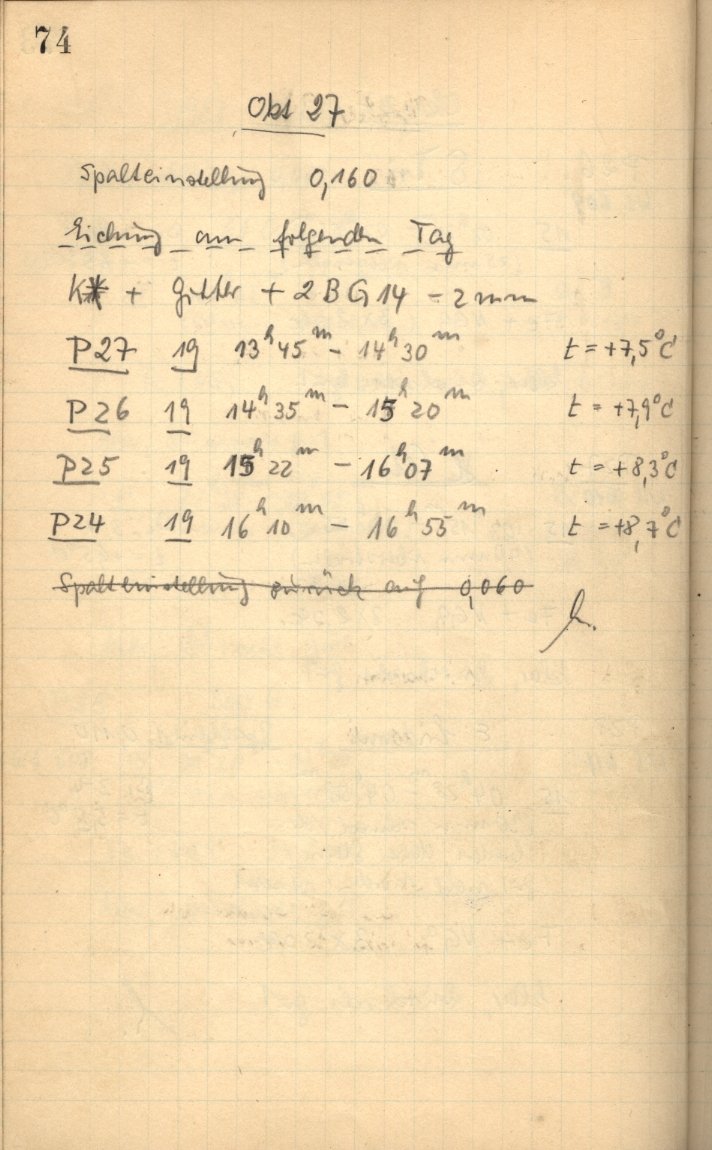 74
Okt 27
Spalteinstellung 0,160
Eichung am folgenden Tag
K* + Gitter + 2 BG 14 - 2 mm
P27 19 13ʰ45ᵐ - 14ʰ30ᵐ t = +7,5°C
P26 19 14ʰ35ᵐ - 15ʰ20ᵐ t = +7,9°C
P25 19 15ʰ22ᵐ - 16ʰ07ᵐ t = +8,3°C
P24 19 16ʰ10ᵐ - 16ʰ55ᵐ t = +8,7°C
Spalteinstellung zurück auf 0,060